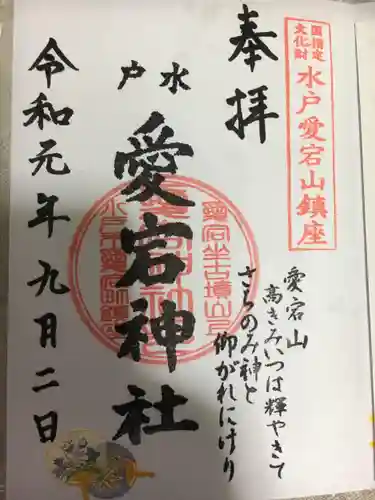 国指定
文化財
水戸愛宕山鎮座
奉拝
愛宕山
高きみいつは輝やきて
さらのみ神と
仰がれにけり
水戸
愛宕神社
令和元年九月二日